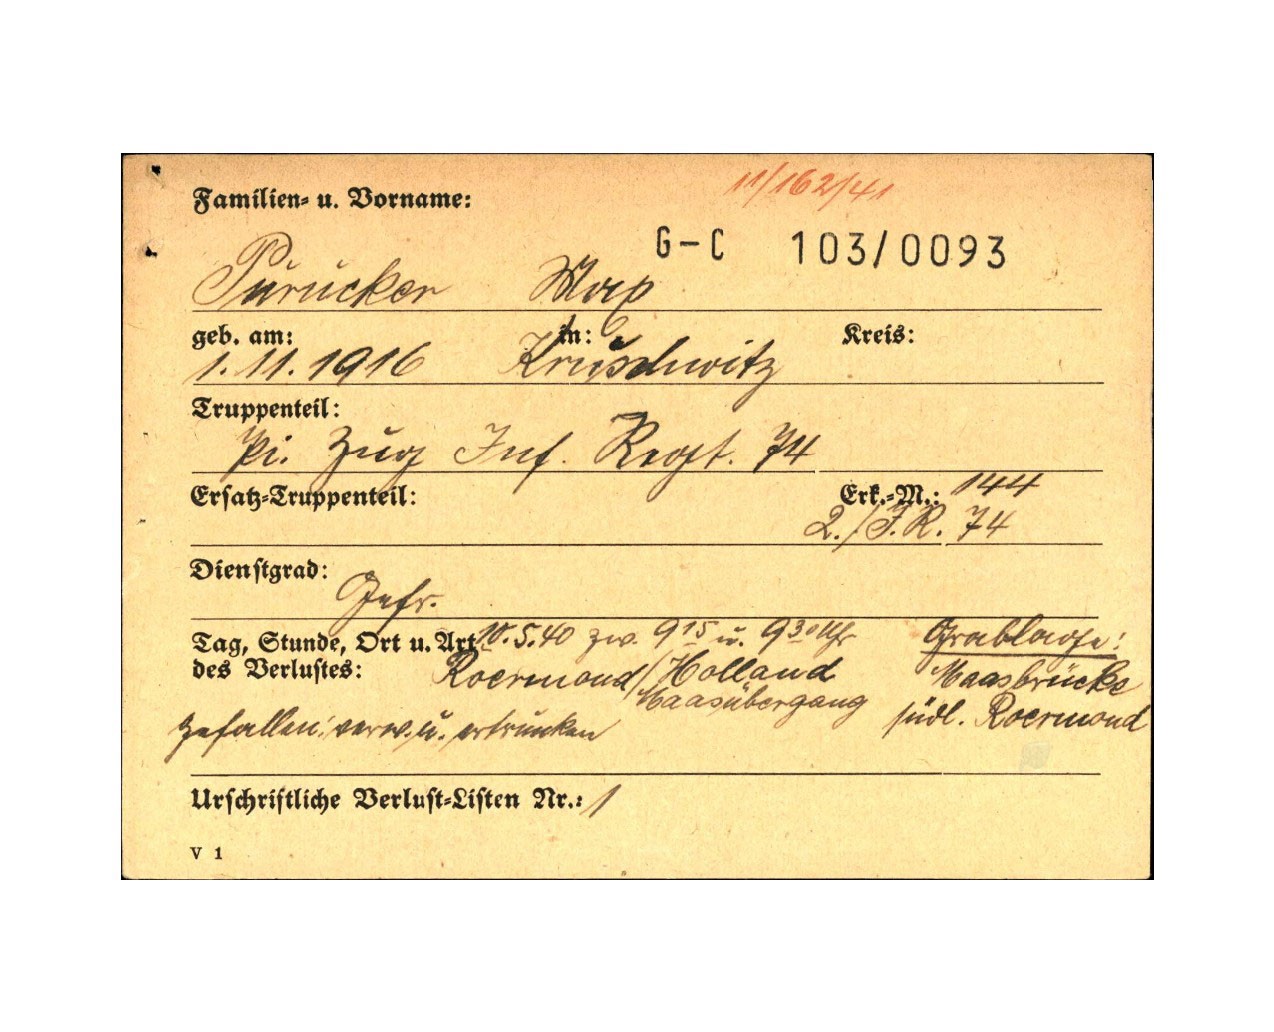 11/162/41
Familien- u. Vorname:
G-C 103/0093
Purucker Max
geb. am: in: Kreis:
1.11.1916 Kruschwitz
Truppenteil:
Pi. Zug Inf. Regt. 74
Ersatz-Truppenteil: Erk.-M.: 144
2./J.R. 74
Dienstgrad:
Gefr.
Tag, Stunde, Ort u. Art 10.5.40 zw. 9 15 u. 9 30 Uhr Grablage:
des Verlustes: Roermond/Holland Maasbrücke
Maasübergang südl. Roermond
gefallen: verw. u. ertrunken
Urschriftliche Verlust-Listen Nr.: 1
V 1